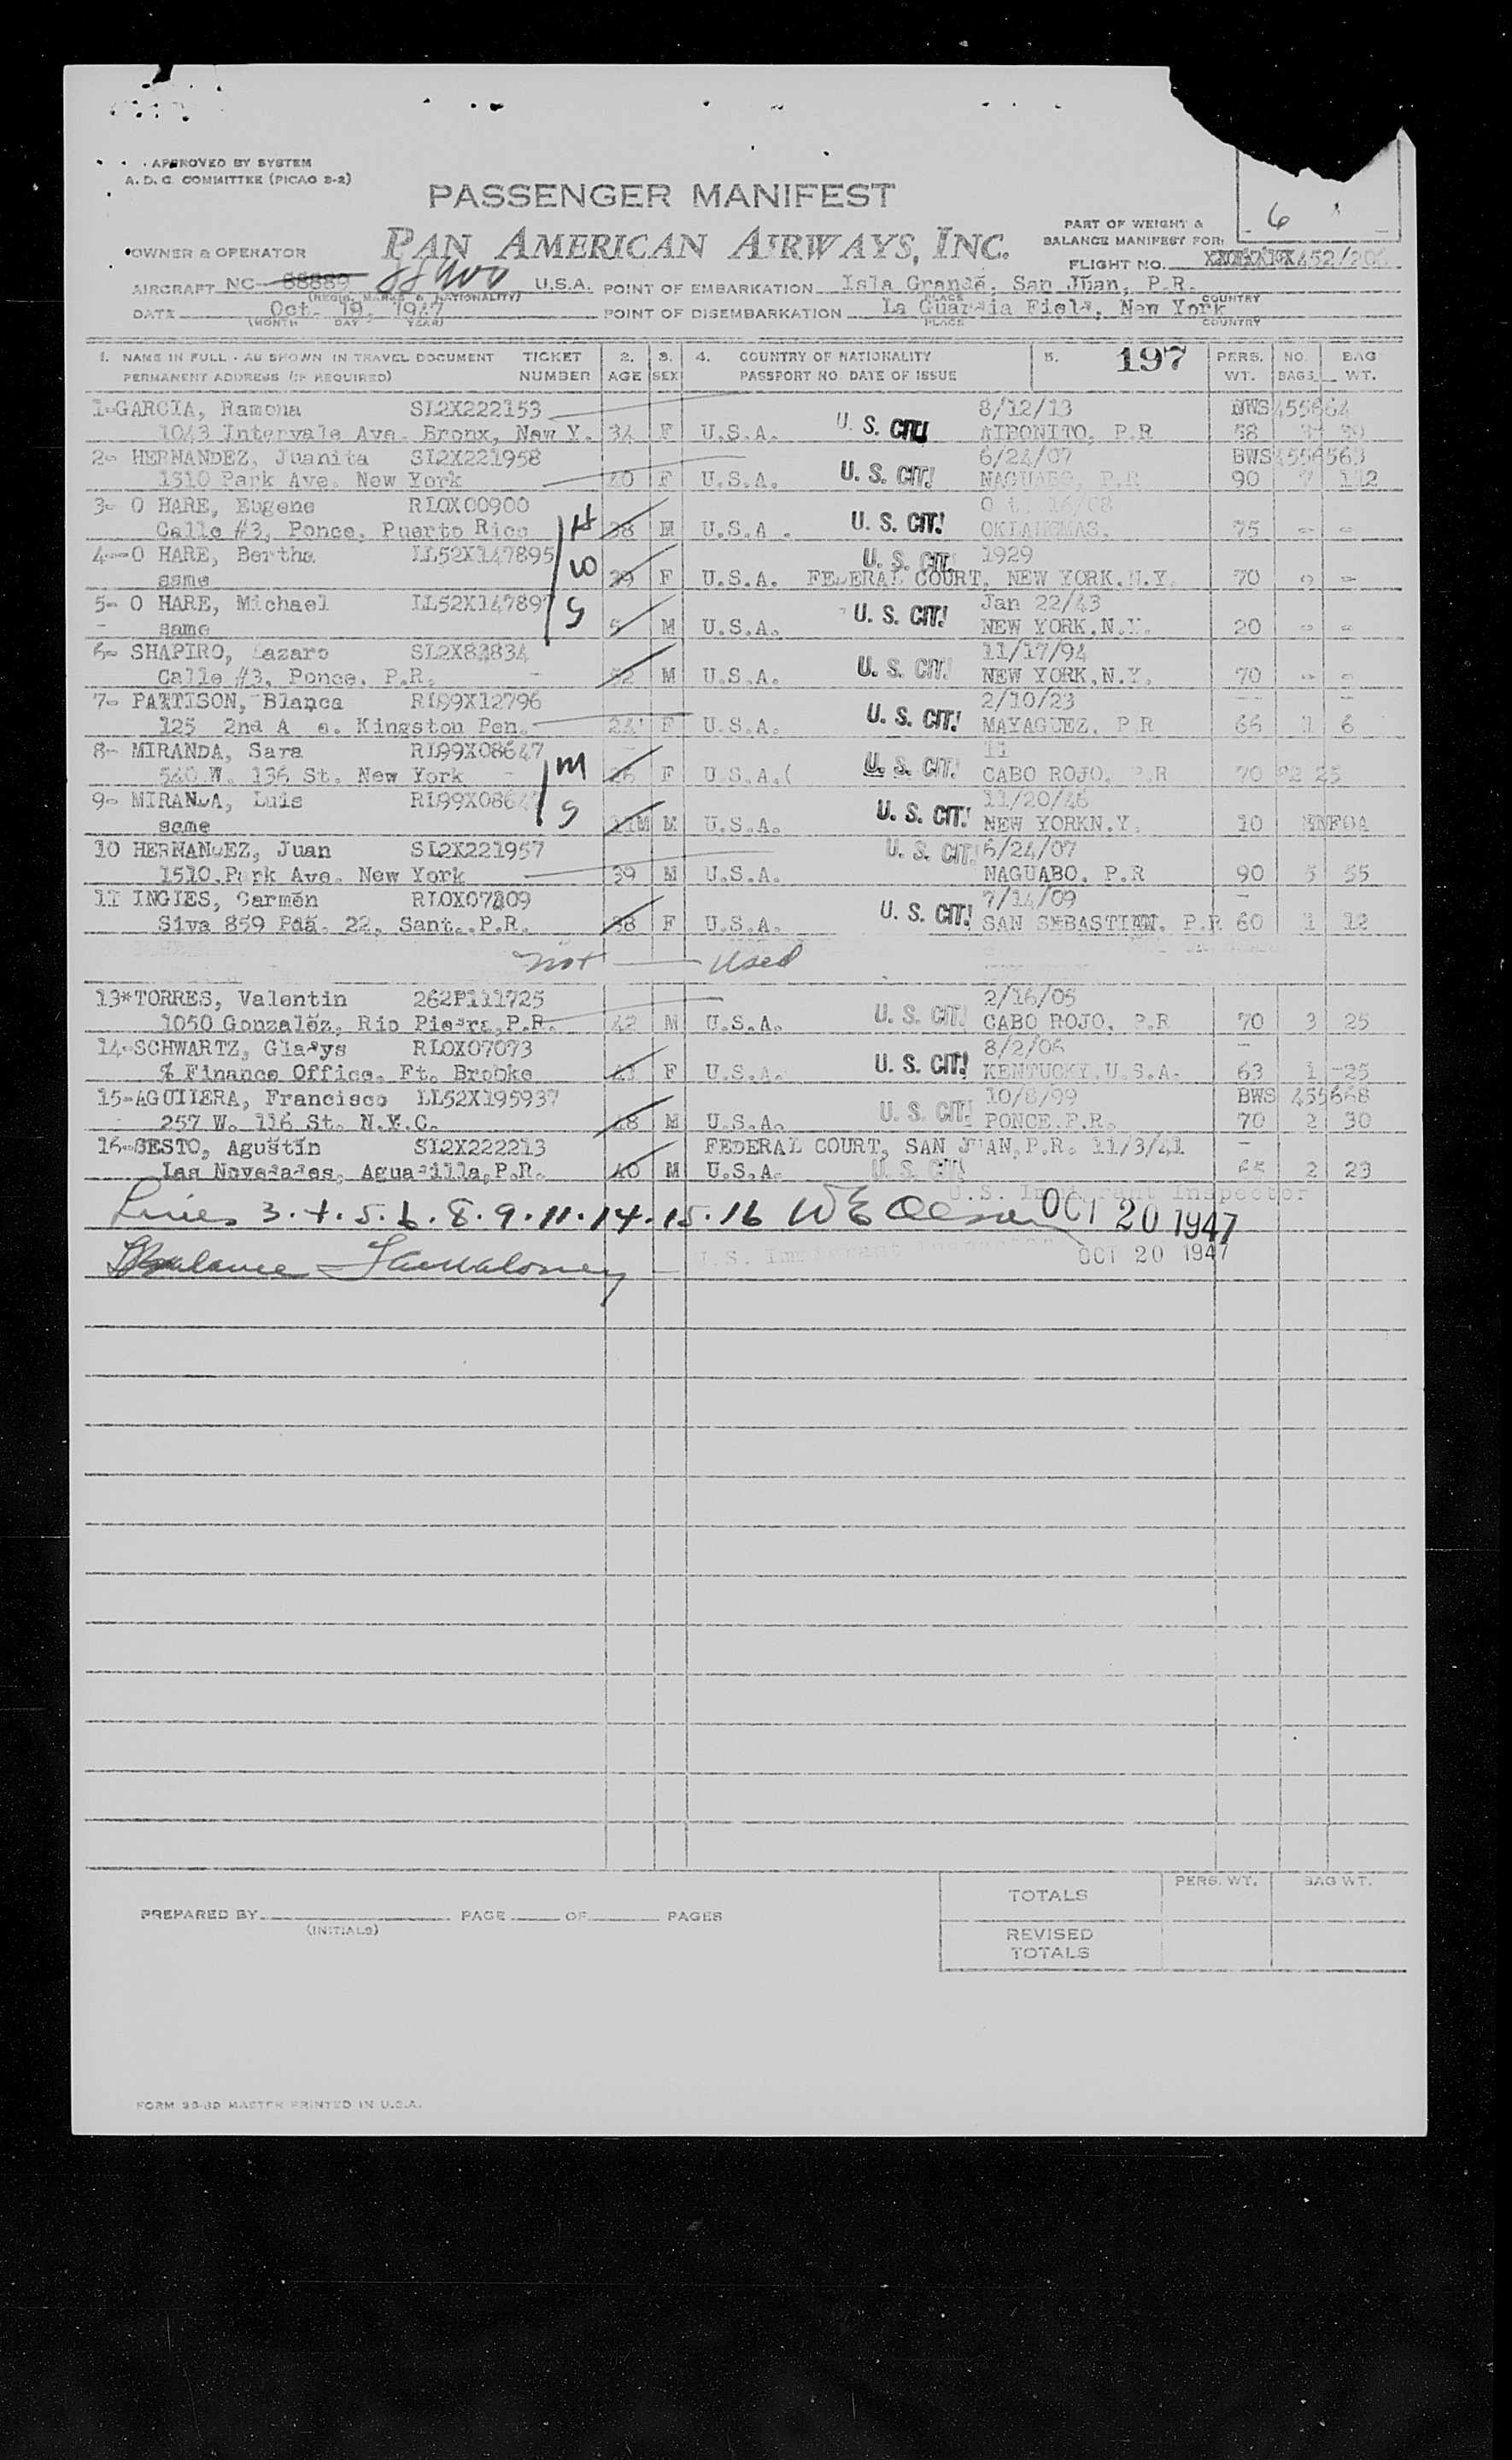 APPROVED BY SYSTEM
A. D. C. COMMITTEE (PICAO 2-2)
PASSENGER MANIFEST
6
OWNER & OPERATOR
PAN AMERICAN AIRWAYS, INC.
PART OF WEIGHT &
BALANCE MANIFEST FOR:
FLIGHT NO. 452/
AIRCRAFT NC- 88889 U.S.A. POINT OF EMBARKATION Isla Grande, San Juan, P.R.
(REGIS. MARKS & NATIONALITY) PLACE COUNTRY
DATE Oct. 19, 1947 POINT OF DISEMBARKATION La Guardia Field, New York
(MONTH DAY YEAR) PLACE COUNTRY
1. NAME IN FULL - AS SHOWN IN TRAVEL DOCUMENT TICKET 2. 3. 4. COUNTRY OF NATIONALITY 5. 197 PERS. NO. BAG
PERMANENT ADDRESS (IF REQUIRED) NUMBER AGE SEX PASSPORT NO. DATE OF ISSUE WT. BAGS WT.
1-GARCIA, Ramona SL2X222153 8/12/13 BWS 455664
1043 Intervale Ave. Bronx, New Y. 34 F U.S.A. U. S. CIT! AIBONITO, P.R 58
2- HERNANDEZ, Juanita SL2X221958 6/24/07 BWS
1510 Park Ave. New York 40 F U.S.A. U. S. CIT! NAGUABO, P.R 90 7
3- O HARE, Eugene RLOX00900
Calle #3, Ponce, Puerto Rico H 38 M U.S.A. U. S. CIT! OKLAHOMAS. 75 - -
4--O HARE, Bertha LL52X147895 U. S. CIT! 1929
same W 39 F U.S.A. FEDERAL COURT, NEW YORK.N.Y. 70 - -
5- O HARE, Michael LL52X147897 Jan 22/43
same S 5 M U.S.A. U. S. CIT! NEW YORK.N.Y. 20 - -
6- SHAPIRO, Lazaro SL2X83834 11/17/94
Calle #3, Ponce, P.R. 52 M U.S.A. U. S. CIT! NEW YORK.N.Y. 70 - -
7- PATTISON, Blanca RL99X12796 2/10/23 -- --
125 2nd A e. Kingston Pen. 24 F U.S.A. U. S. CIT! MAYAGUEZ, P.R 66 1 6
8- MIRANDA, Sara RL99X08647 11
540 W. 136 St. New York M 26 F U.S.A.( U. S. CIT! CABO ROJO, P.R 70 25
9- MIRANDA, Luis RL99X0864 11/20/46
same S 11M M U.S.A. U. S. CIT! NEW YORKN.Y. 10
10 HERNANDEZ, Juan SL2X221957 U. S. CIT! 6/24/07
1510.Park Ave. New York 39 M U.S.A. NAGUABO. P.R 90 5 55
11 INGLES, Carmen RLOX07809 7/14/09 -
Siva 859 Pda. 22, Sant..P.R. 38 F U.S.A. U. S. CIT! SAN SEBASTIAN. P.R 60 1 12
not — Used
13*TORRES, Valentin 262P111725 2/16/05
1050 Gonzalez, Rio Piedra,P.R. 42 M U.S.A. U. S. CIT! CABO ROJO, P.R 70 3 25
14-SCHWARTZ, Gladys RLOX07073 8/2/06 -
% Finance Office. Ft. Brooke F U.S.A. U. S. CIT! KENTUCKY.U.S.A. 63 1 25
15-AGUILERA, Francisco LL52X195937 10/8/99 BWS 455668
257 W. 116 St. N.Y.C. 48 M U.S.A. U. S. CIT! PONCE.P.R. 70 2 30
16-SESTO, Agustin SL2X222213 FEDERAL COURT, SAN JUAN,P.R. 11/3/41 -
Las Novedades, Aguadilla,P.R. 40 M U.S.A. U. S. CIT! 2 23
U.S. Immigrant Inspector
Lines 3.4.5.6.8.9.11.14.15.16 W E Olson OCT 20 1947
Balance U.S. Immigrant Inspector OCT 20 1947
PERS. WT. BAG WT.
TOTALS
PREPARED BY PAGE OF PAGES
(INITIALS)
REVISED
TOTALS
FORM 98-8D MASTER PRINTED IN U.S.A.